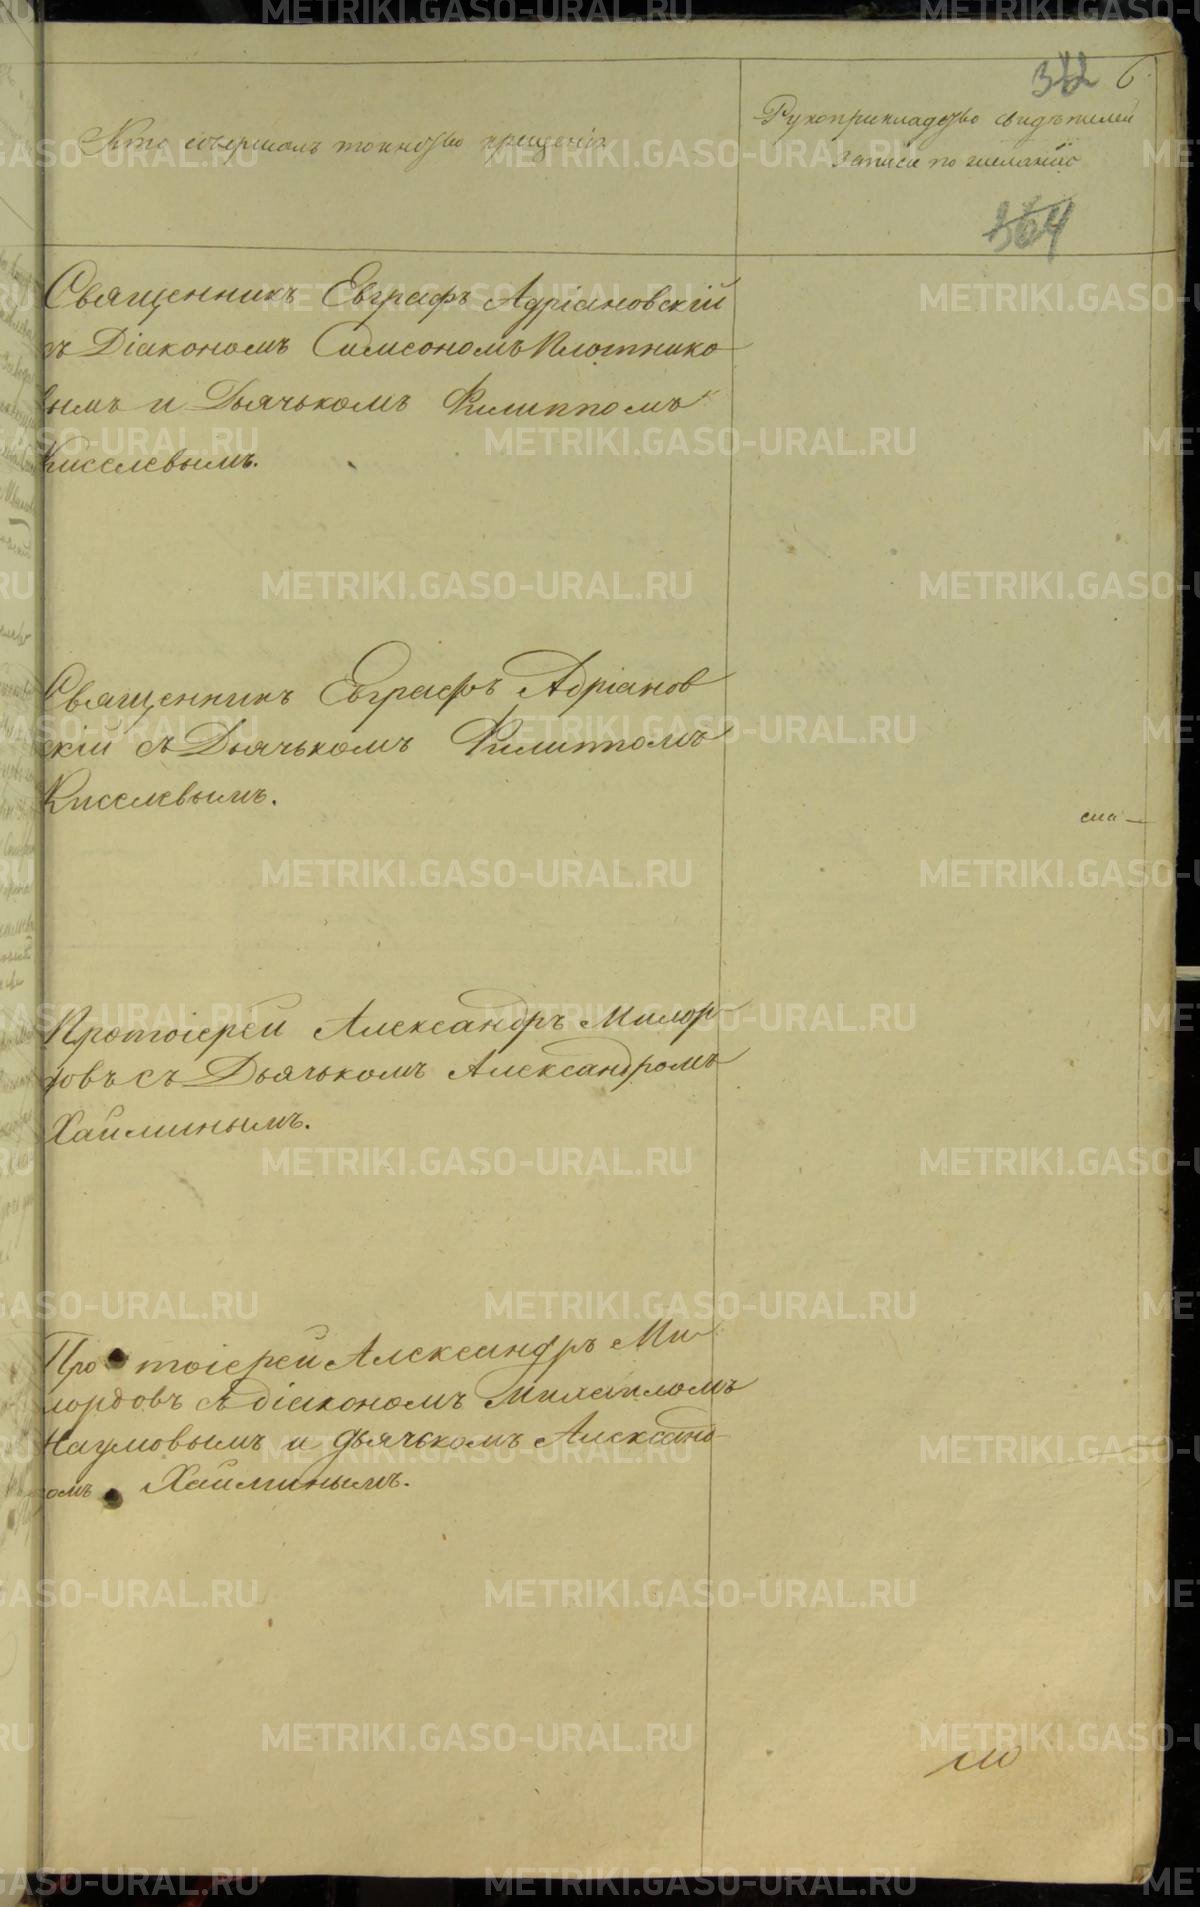 6
Кто совершалъ таинство крещенія
Рукоприкладство свидѣтелей
записи по желанію
364
Священникъ Евграфъ Адріановскій
съ Діакономъ Симеономъ Плотнико
вымъ и Дьячькомъ Филиппомъ
Киселевымъ.
Священникъ Евграфъ Адріанов
скій съ Дьячькомъ Филиппомъ
Киселевымъ.
Протоіерей Александръ Милор
довъ съ Дьячькомъ Александромъ
Хайминымъ.
Протоіерей Александръ Ми
лордовъ съ діакономъ Михаиломъ
Наумовымъ и дьячькомъ Александ
ромъ Хайминымъ.
METRIKI.GASO-URAL.RU